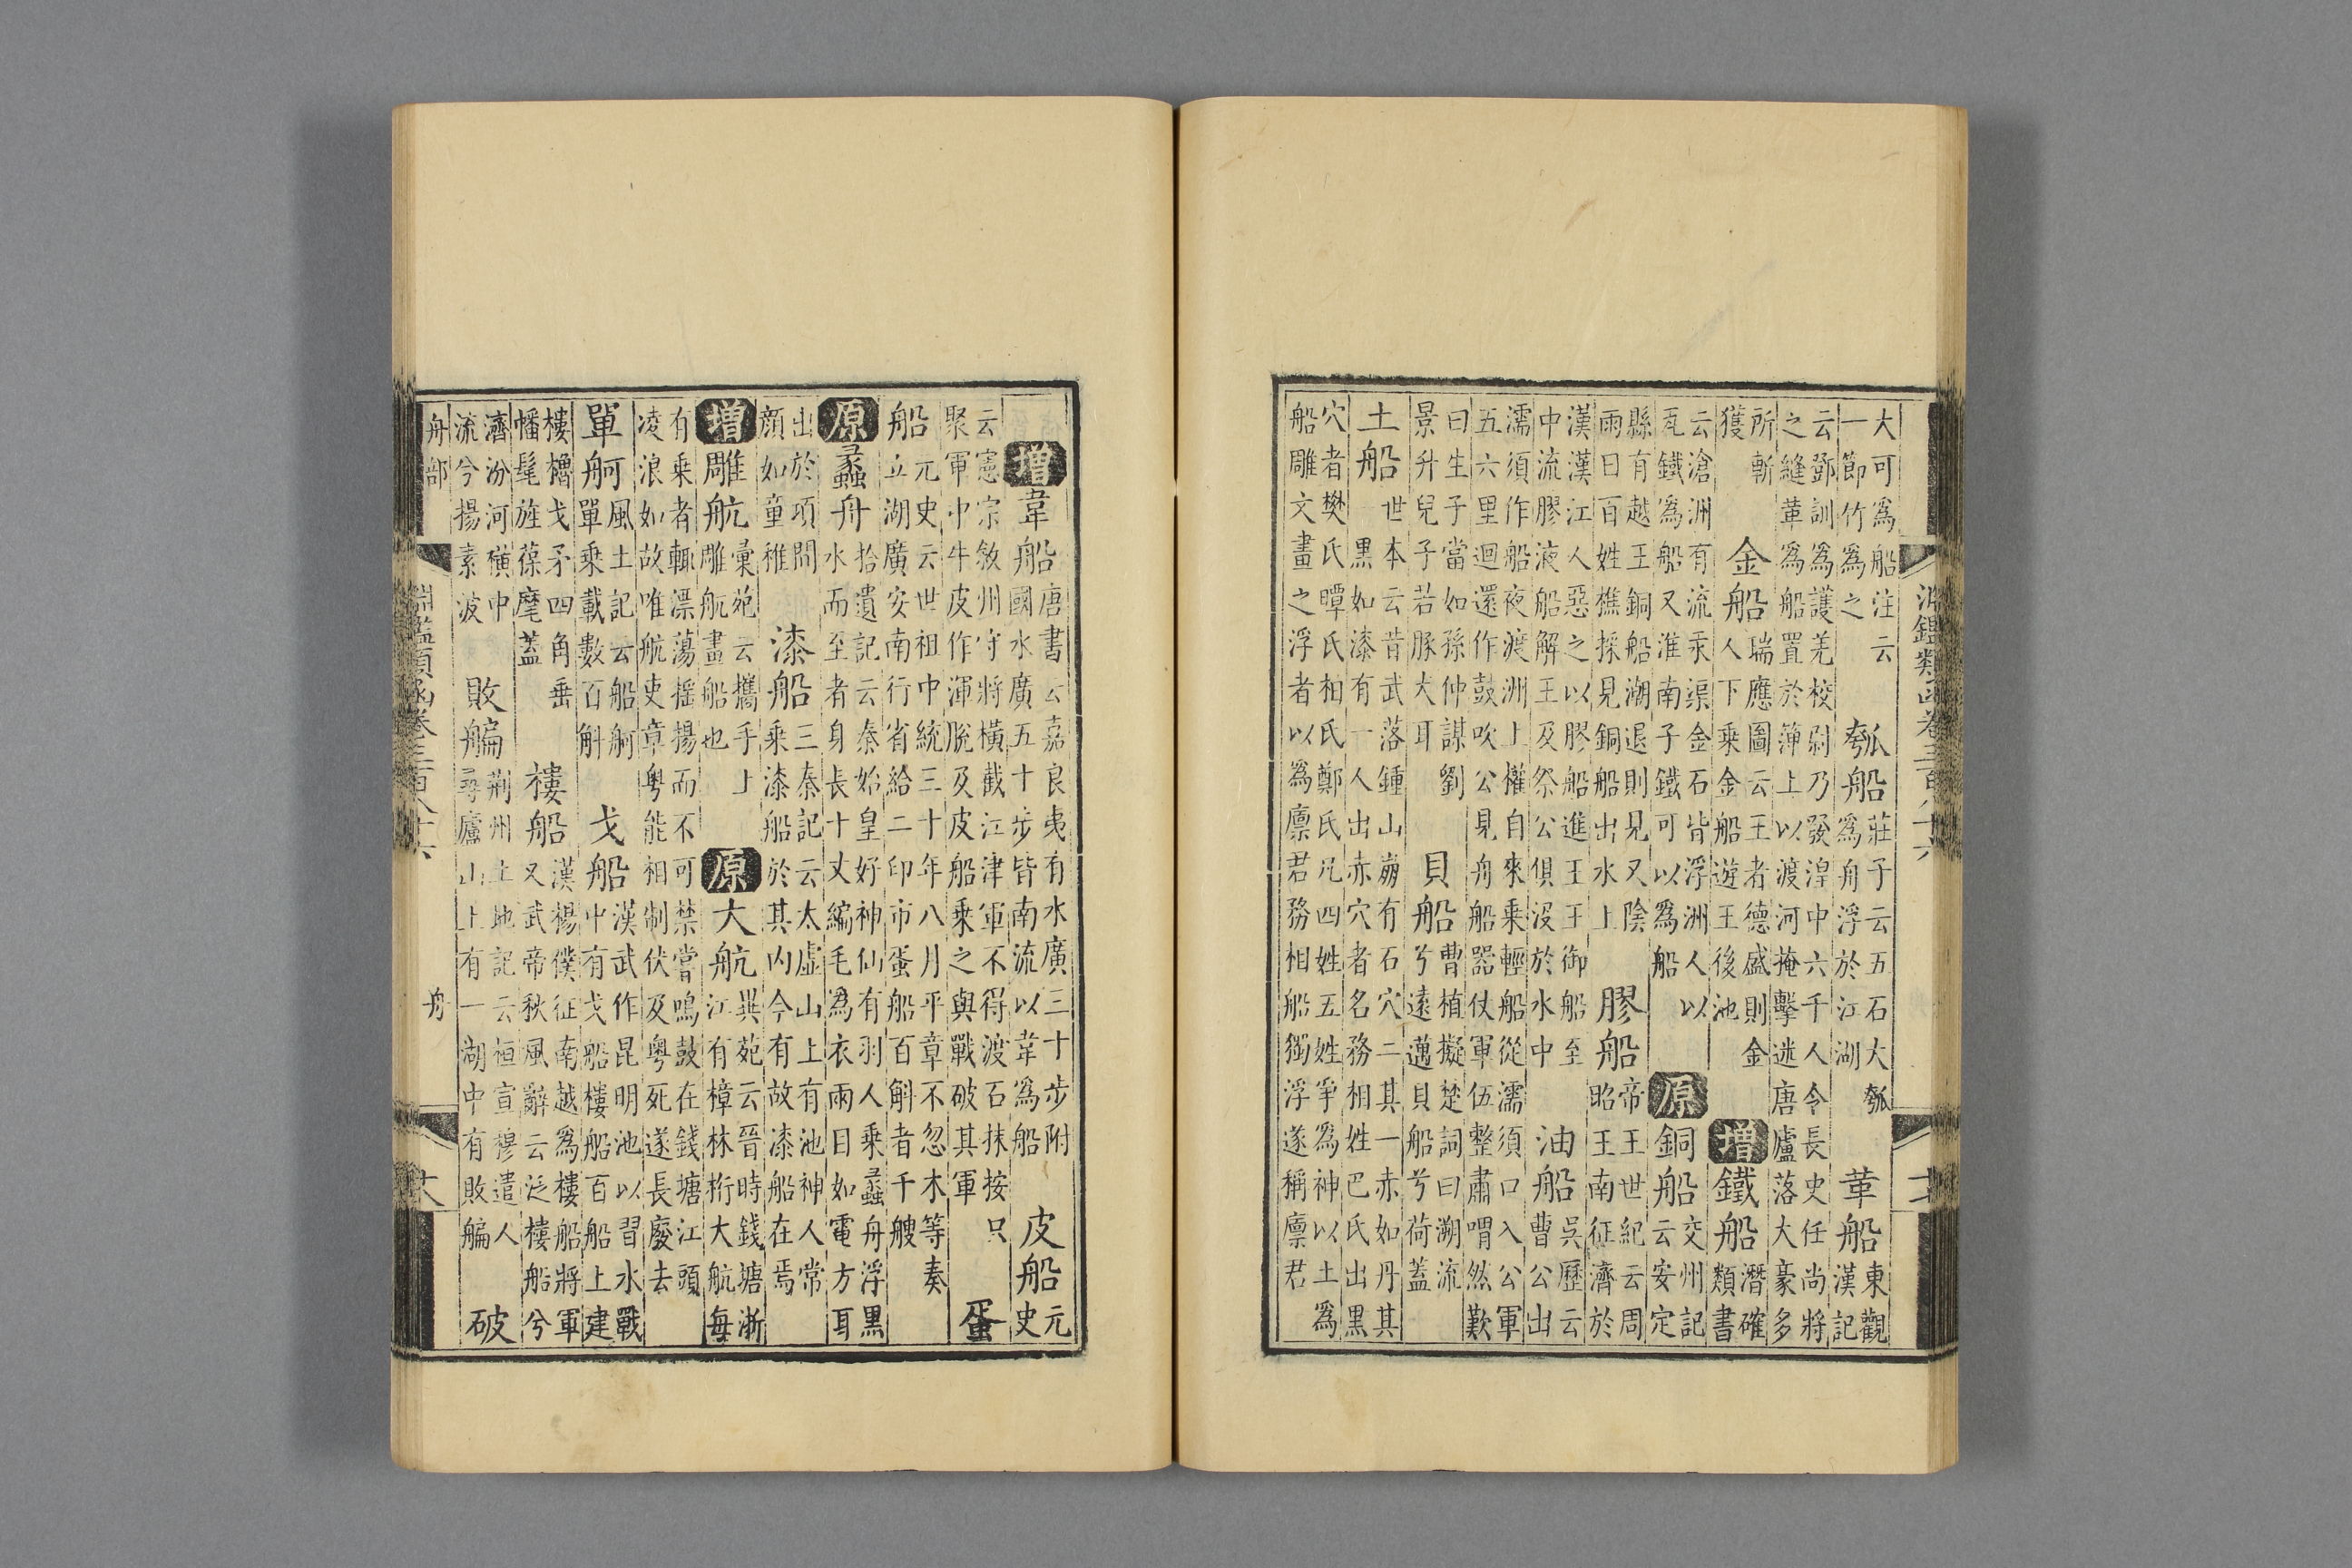 淵鑑類函卷三百八十六
大可爲船注云
一節竹爲之
瓠船
莊子云五石大瓠
爲舟浮於江湖
革船
東觀
漢記
云鄧訓爲護羌校尉乃發湟中六千人令長史任尚將
之縫革爲船置於箄上以渡河掩擊迷唐廬落大豪多
所斬
獲
金船
瑞應圖云王者德盛則金
人下乘金船遊王後池
增
鐵船
潛確
類書
云滄洲有流汞渠金石皆浮洲人以
瓦鐵爲船又淮南子鐵可以爲船
原
銅船
交州記
云安定
縣有越王銅船潮退則見又陰
雨日百姓樵採見銅船出水上
膠船
帝王世紀云周
昭王南征濟於
漢漢江人惡之以膠船進王王御船至
中流膠液船解王及祭公俱沒於水中
油船
吳歷云
曹公出
濡須作船夜渡洲上權自來乘輕船從濡須口入公軍
五六里迴還作鼓吹公見舟船器仗軍伍整肅喟然歎
曰生子當如孫仲謀劉
景升兒子若豚犬耳
貝船
曹植擬楚詞曰溯流
兮遠邁貝船兮荷蓋
土船
世本云昔武落鍾山崩有石穴二其一赤如丹其
黑如漆有一人出赤穴者名務相姓巴氏出黑
穴者樊氏瞫氏相氏鄭氏凡四姓五姓爭爲神以土爲
船雕文畫之浮者以爲廩君務相船獨浮遂稱廩君
增
韋船
唐書云嘉良夷有水廣三十步附
國水廣五十步皆南流以韋爲船
皮船
元
史
云憲宗敘州守將橫截江津軍不得渡石抹按只
聚軍中牛皮作渾脫及皮船乘之與戰破其軍
蛋
船
元史云世祖中統三十年八月平章不忽木等奏
立湖廣安南行省給二印市蛋船百斛者千艘
原
蠡舟
拾遺記云秦始皇好神仙有羽人乘蠡舟浮黑
水而至者身長十丈編毛爲衣兩目如電方耳
出於項間
顏如童稚
漆船
三秦記云太虛山上有池神人常
乘漆船於其內今有故漆船在焉
增
雕航
彙苑云攜手上
雕航畫船也
原
大航
異苑云晉時錢塘浙
江有樟林桁大航每
有乘者輒漂蕩搖揚而不可禁嘗鳴鼓在錢塘江頭
凌浪如故唯航吏章粵能相制伏及粵死遂長廢去
單舸
風土記云船舸
單乘載數百斛
戈船
漢武作昆明池以習水戰
中有戈船樓船百船上建
樓櫓戈矛四角垂
幡髦旌葆麾蓋
樓船
漢楊僕征南越爲樓船將軍
又武帝秋風辭云泛樓船兮
濟汾河橫中
流兮揚素波
敗艑
荊州土地記云桓宣穆遣人
尋廬山上有一湖中有敗艑
破
舟部
淵鑑類函卷三百八十六
舟